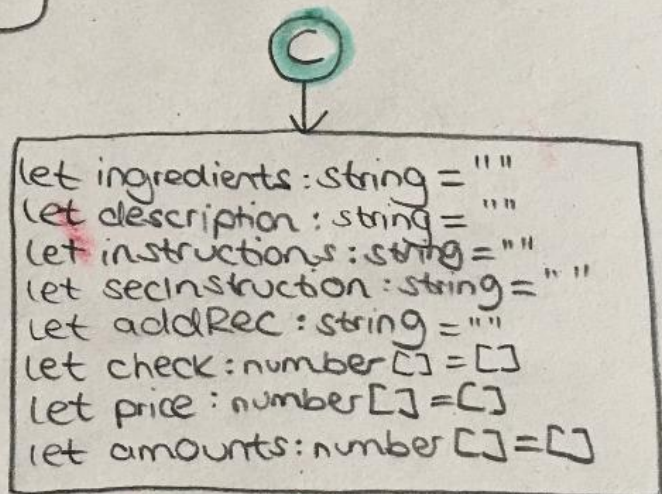 C
let ingredients: string = ""
let description: string = ""
let instructions: string = ""
let secInstruction: string = " "
let addRec: string = ""
let check: number[] = []
let price: number[] = []
let amounts: number[] = []